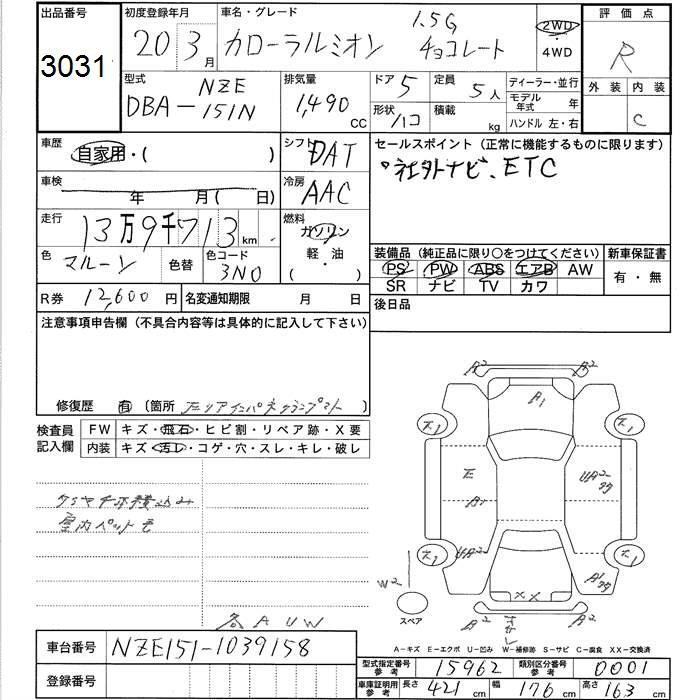 出品番号
3031
初度登録年月
20 3月
車名・グレード
1.5G
カローラルミオン チョコレート
2WD
・
4WD
評価点
R
外装 内装
C
型式
NZE
DBA-151N
排気量
1,490 CC
ドア 5
定員 5人
形状 ハコ
積載 kg
ディーラー・並行
モデル年式 年
ハンドル 左・右
車歴
自家用・( )
シフト DAT
セールスポイント(正常に機能するものに限ります)
社外ナビ、ETC
車検
年 月( 日)
冷房 AAC
走行
13万9千713km
燃料
ガソリン
軽・油
( )
色 マルーン
色替
色コード 3N0
装備品(純正品に限り○をつけてください)
新車保証書
PS PW ABS エアB AW
SR ナビ TV カワ
有・無
R券 12,600円
名変通知期限 月 日
後日品
注意事項申告欄(不具合内容等は具体的に記入して下さい)
修復歴 有 〔箇所 〕
検査員
記入欄
FW キズ・飛石・ヒビ割・リペア跡・X要
内装 キズ・汚レ・コゲ・穴・スレ・キレ・破レ
室内ペット毛
各AUW
A2 A2
A1
E
A1
UA2
UA2
A1
W2
スペア
XX
A2 A2
A-キズ E-エクボ U-凹み W-補修跡 S-サビ C-腐食 XX-交換済
車台番号 NZE151-1039158
登録番号
型式指定番号 参考 15962
類別区分番号 参考 0001
車庫証明用 参考 長さ 421cm 幅 176cm 高さ 163cm